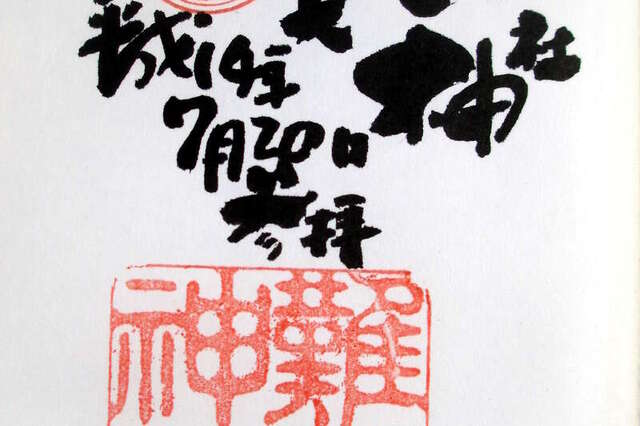 神社
平成14年
7月20日
参拝
難神